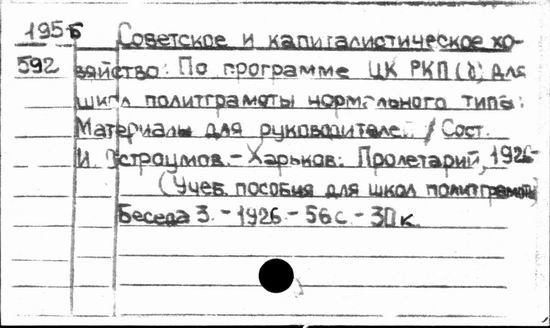 195б Советское и капиталистическое хо-
592 зяйство: По программе ЦК РКП(б) для
школ политграмоты нормального типа:
Материалы для руководителей / Сост.
И. Остроумов. - Харьков: Пролетарий, 1926-
(Учеб. пособия для школ политграмоты)
Беседа 3. - 1926. - 56 с. - 30 к.